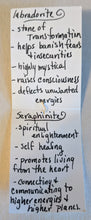 Labradorite
- stone of
Transformation
- helps banish fears
& insecurities
- highly mystical
- raises consciousness
- defects unwanted
energies
Seraphinite
- spiritual
enlightenment
- self healing
- promotes living
from the heart!
- connection &
communicating to
higher energies &
higher planes